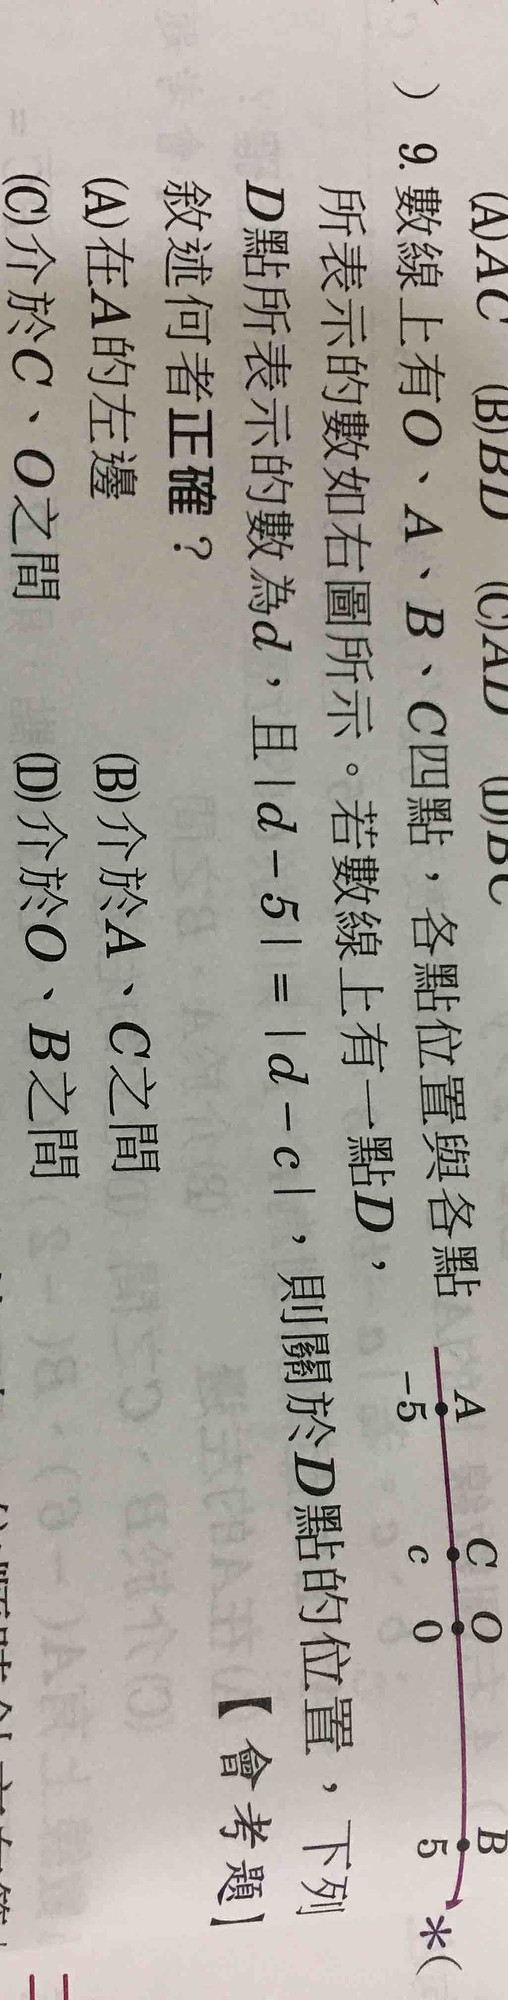 (A)AC (B)BD (C)AD (D)BC
) 9. 數線上有O、A、B、C四點，各點位置與各點
所表示的數如右圖所示。若數線上有一點D，
D點所表示的數為d，且|d－5|=|d－c|，則關於D點的位置，下列
敘述何者正確？ 【會考題】
(A)在A的左邊 (B)介於A、C之間
(C)介於C、O之間 (D)介於O、B之間
A C O B
-5 c 0 5
*(